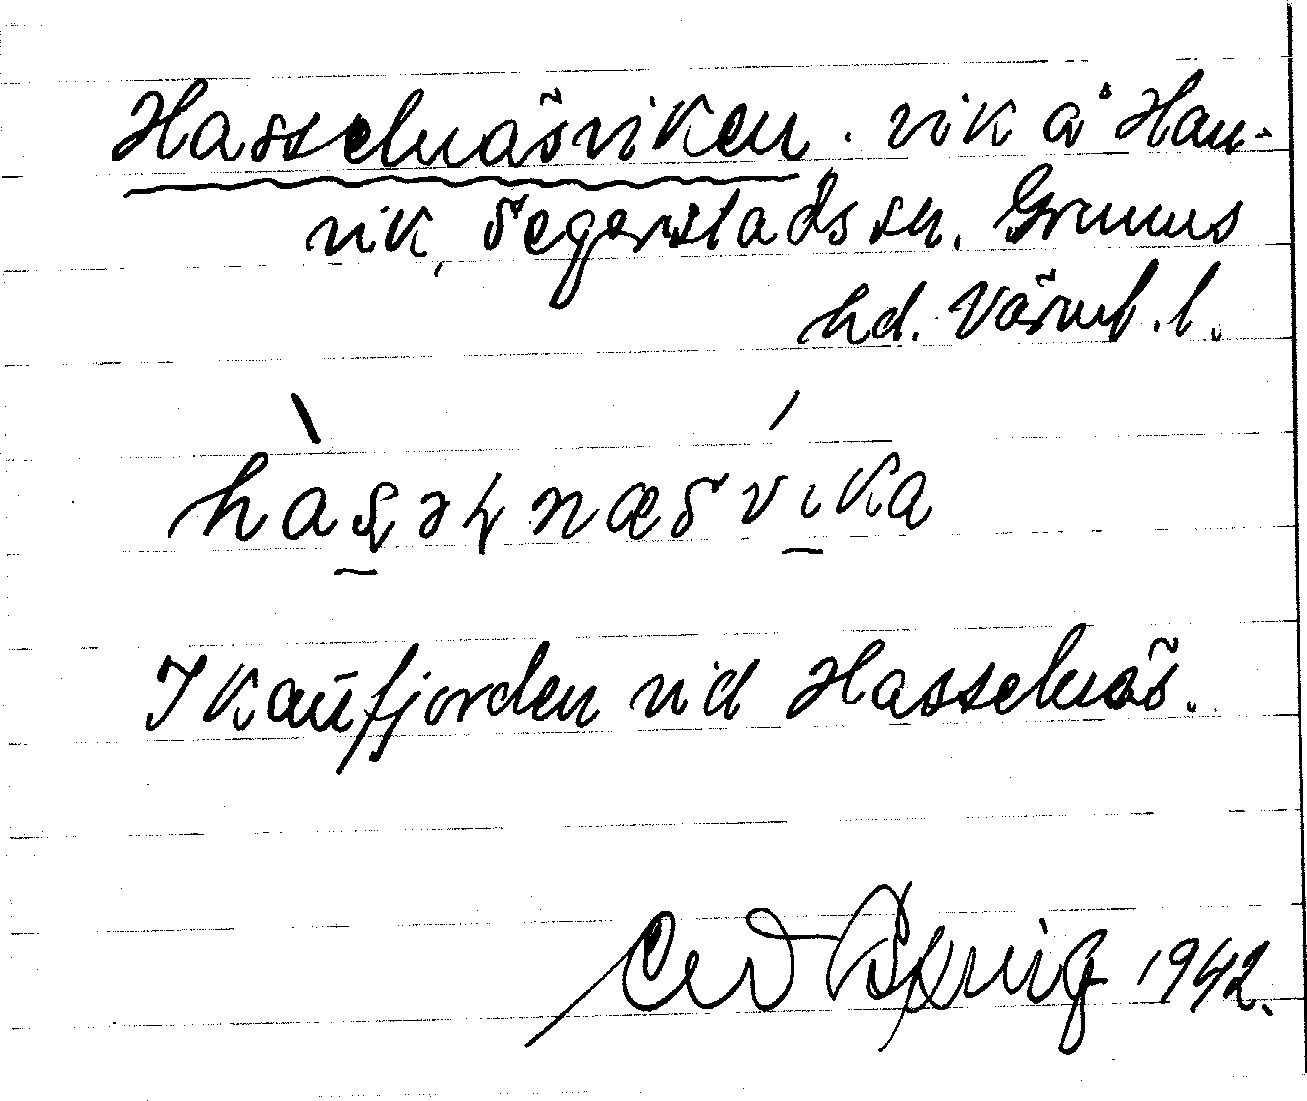 Hasselnäsviken. vik å Han-
vik, Segerstads sn. Grums
hd. Värml. l.
hàs̱əɬnæsvi̱ka
I Kaufjorden vid Hasselnäs.
1942.